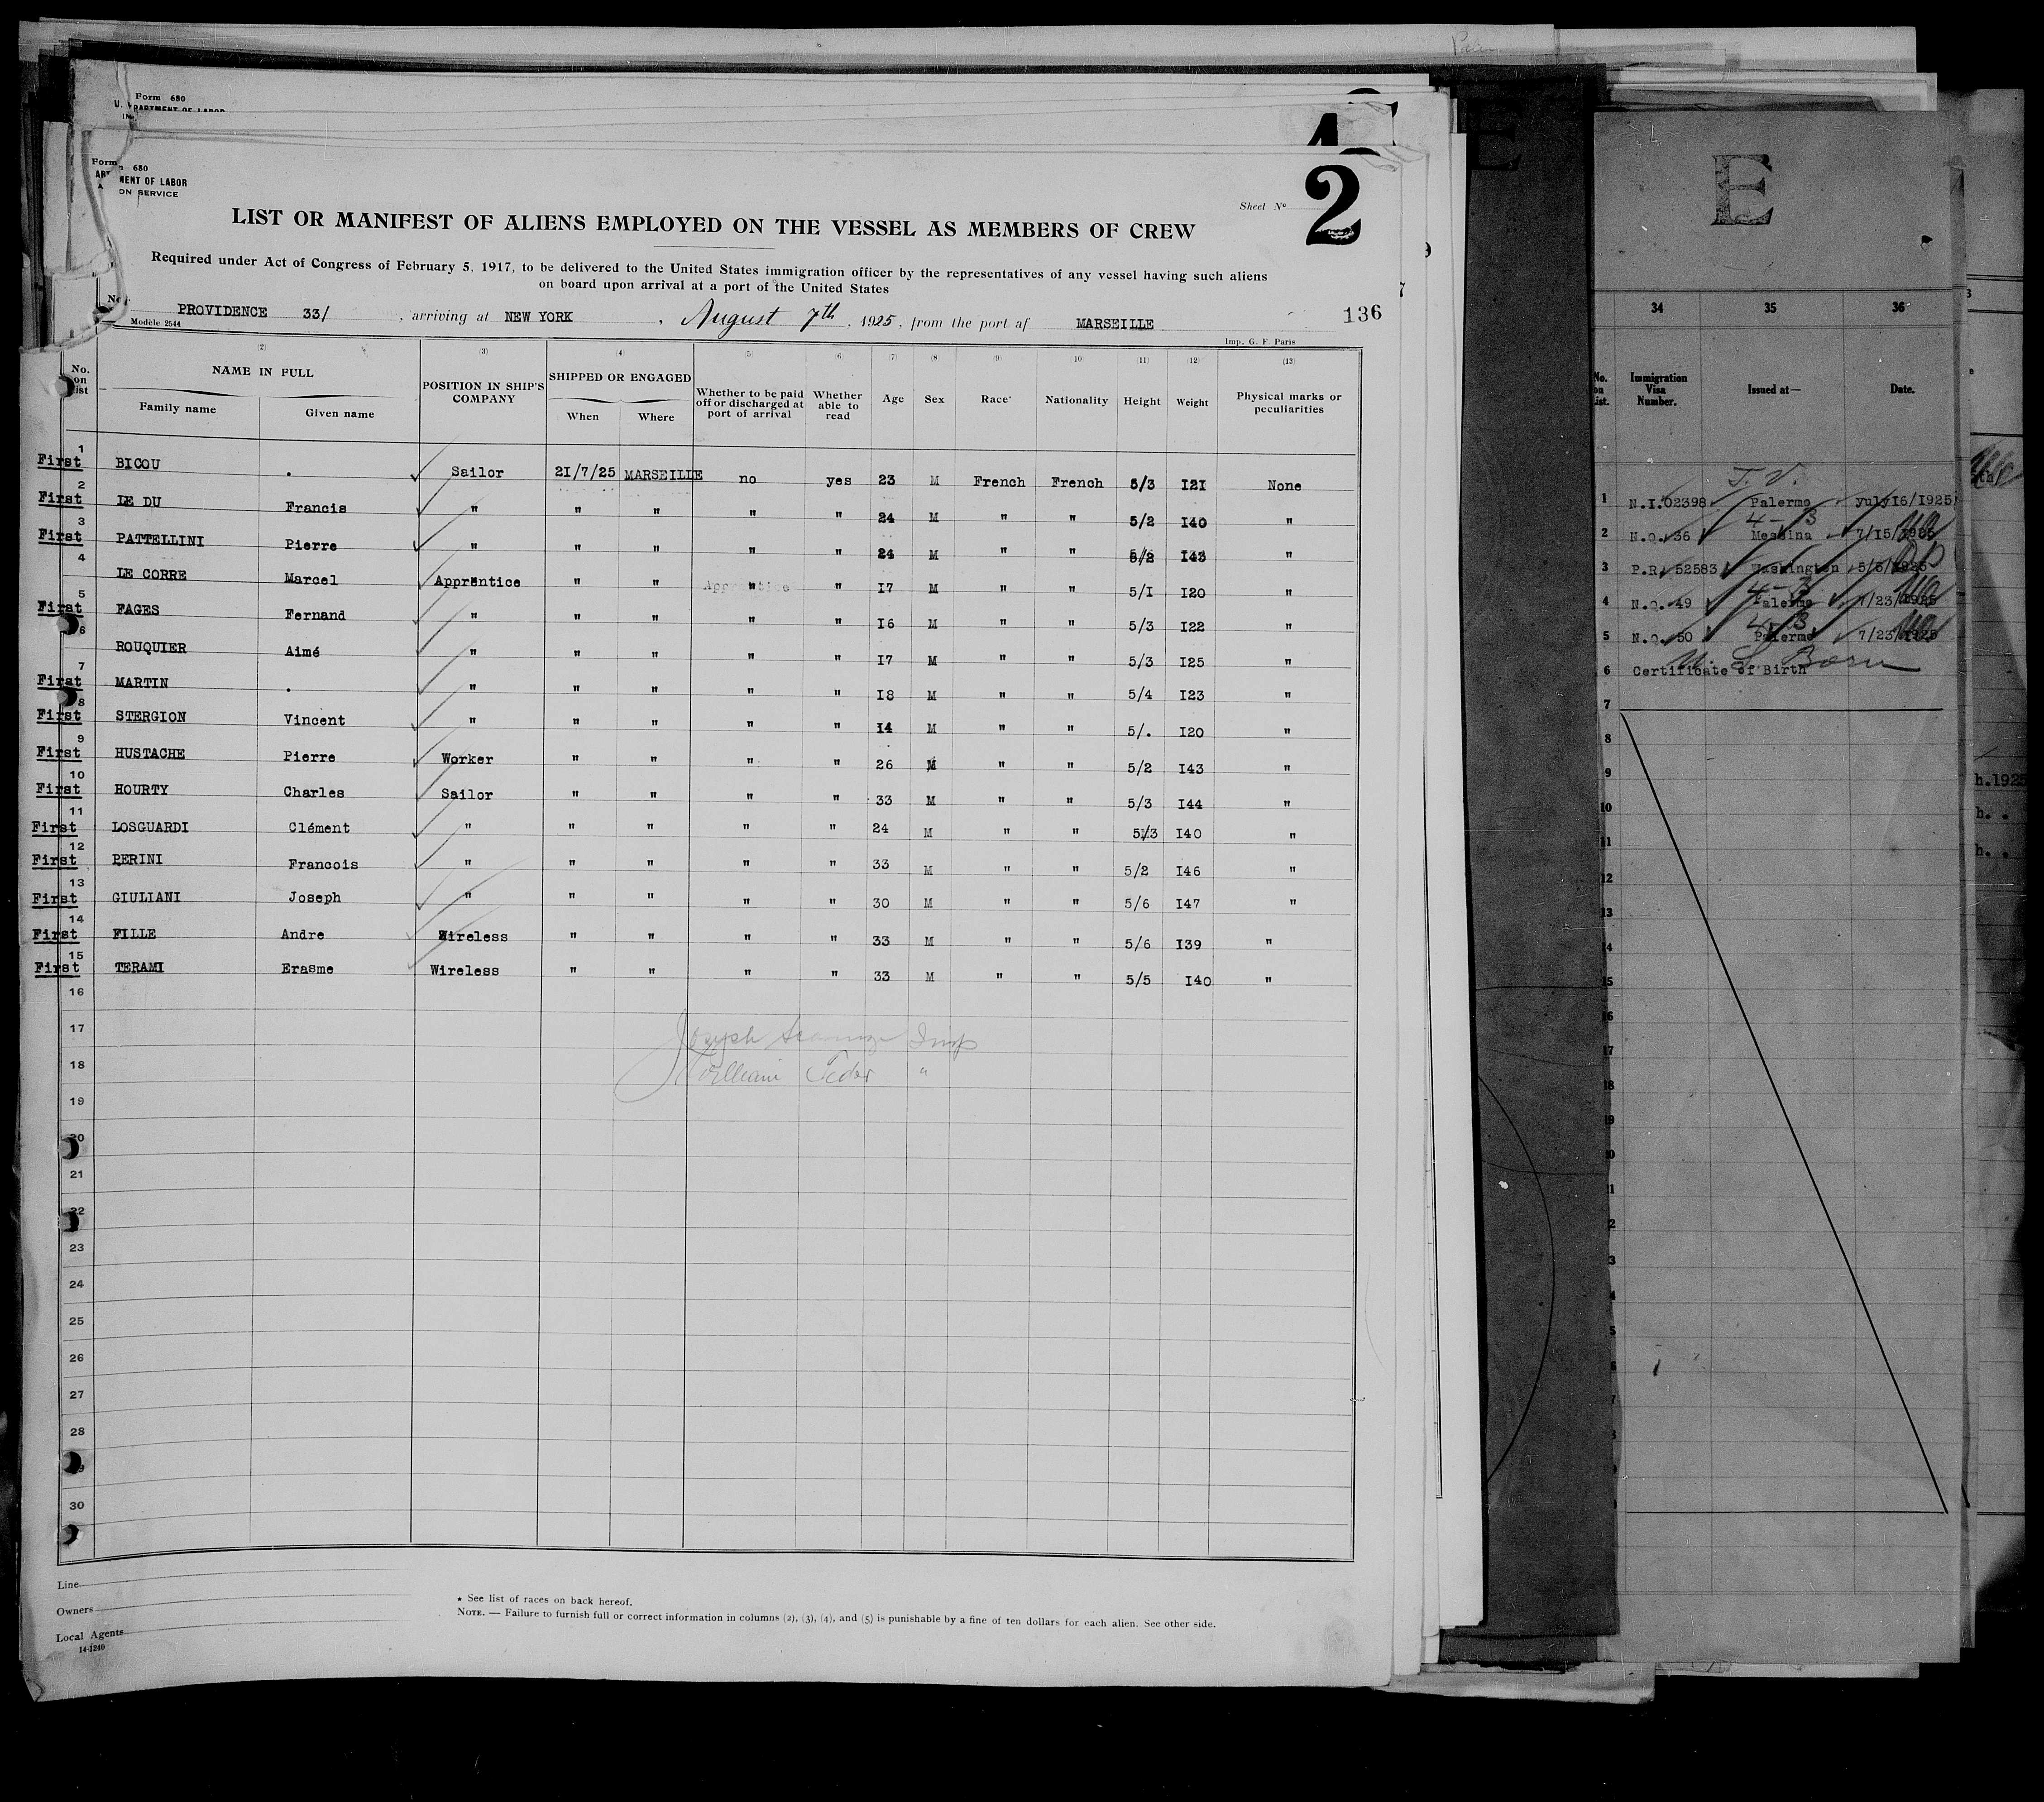 Form 680
Form 680
MENT OF LABOR
ON SERVICE
Sheet No
2
LIST OR MANIFEST OF ALIENS EMPLOYED ON THE VESSEL AS MEMBERS OF CREW
Required under Act of Congress of February 5, 1917, to be delivered to the United States immigration officer by the representatives of any vessel having such aliens
on board upon arrival at a port of the United States
PROVIDENCE 33/ , arriving at NEW YORK , August 7th , 1925, from the port af MARSEILLE 136
Modèle 2544
Imp. G. F. Paris
(2) (3) (4) (5) (6) (7) (8) (9) (10) (11) (12) (13)
No. on list NAME IN FULL POSITION IN SHIP'S COMPANY SHIPPED OR ENGAGED Whether to be paid off or discharged at port of arrival Whether able to read Age Sex Race* Nationality Height Weight Physical marks or peculiarities
Family name Given name When Where
1 First BICOU . Sailor 21/7/25 MARSEILLE no yes 23 M French French 5/3 I2I None
2 First LE DU Francis " " " " " 24 M " " 5/2 I40 "
3 First PATTELLINI Pierre " " " " " 24 M " " 5/2 I43 "
4 LE CORRE Marcel Apprentice " " " " I7 M " " 5/I I20 "
5 First FAGES Fernand " " " " " I6 M " " 5/3 I22 "
6 ROUQUIER Aimé " " " " " I7 M " " 5/3 I25 "
7 First MARTIN . " " " " " I8 M " " 5/4 I23 "
8 First STERGION Vincent " " " " " I4 M " " 5/. I20 "
9 First HUSTACHE Pierre Worker " " " " 26 M " " 5/2 I43 "
10 First HOURTY Charles Sailor " " " " 33 M " " 5/3 I44 "
11 First LOSGUARDI Clément " " " " " 24 M " " 5/3 I40 "
12 First PERINI Francois " " " " " 33 M " " 5/2 I46 "
13 First GIULIANI Joseph " " " " " 30 M " " 5/6 I47 "
14 First FILLE Andre Wireless " " " " 33 M " " 5/6 I39 "
15 First TERAMI Erasme Wireless " " " " 33 M " " 5/5 I40 "
16
17 Joseph Insp
18 William "
19
20
21
22
23
24
25
26
27
28
30
Line
Owners
Local Agents
14-1240
* See list of races on back hereof.
NOTE. — Failure to furnish full or correct information in columns (2), (3), (4), and (5) is punishable by a fine of ten dollars for each alien. See other side.
E
34 35 36
No. on List. Immigration Visa Number. Issued at— Date.
1 N.I.02398 Palermo yuly16/1925
2 N.Q. 36 Messina 7/15/1925
3 P.R. 52583 Washington 5/5/1925
4 N.Q. 49 Palermo 7/23/1925
5 N.Q. 50 Palermo 7/23/1925
U. S. Born
6 Certificate of Birth
7
8
9
10
11
12
13
14
15
16
17
18
19
h.1925
h. .
h. .